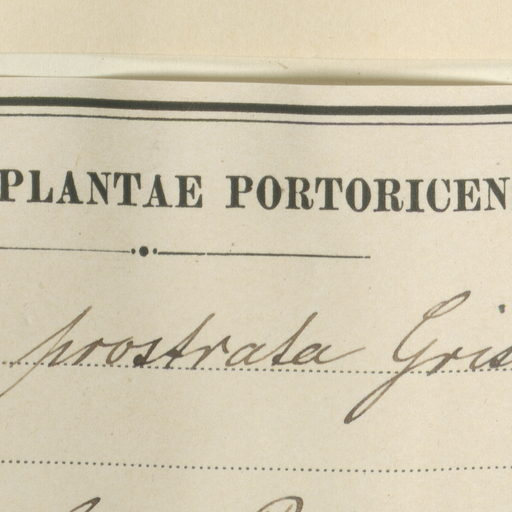 PLANTAE PORTORICEN
prostrata Gris